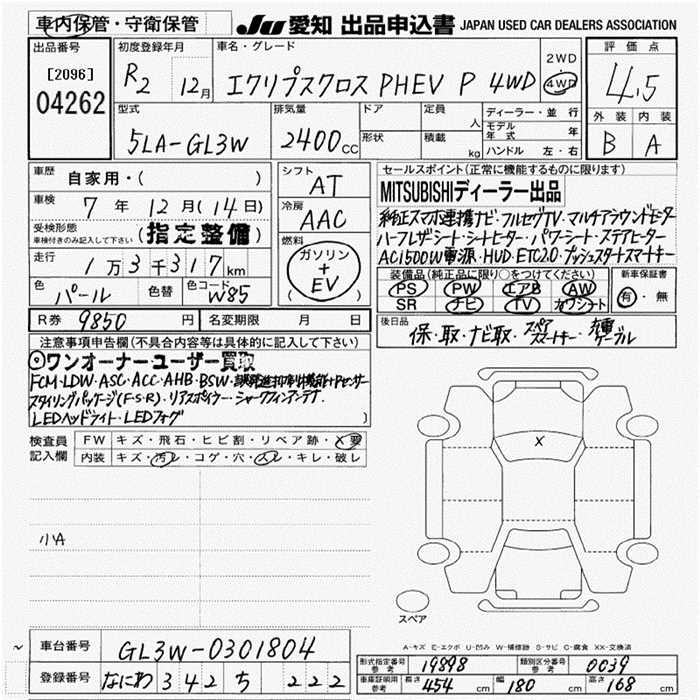 車内保管・守衛保管
JU 愛知 出品申込書 JAPAN USED CAR DEALERS ASSOCIATION
出品番号
[2096]
04262
初度登録年月
R2 12月
車名・グレード
エクリプスクロス PHEV P 4WD
2WD
4WD
評価点
4.5
外装 内装
B A
型式
5LA-GL3W
排気量
2400cc
ドア
形状
定員 人
積載 kg
ディーラー・並行
モデル年式 年
ハンドル 左・右
車歴
自家用・( )
車検
7年 12月(14日)
受検形態
車検付きのみ記入して下さい
(指定整備)
走行
1万3千317km
色
パール
色替
色コード
W85
シフト
AT
冷房
AAC
燃料
ガソリン
+
EV
セールスポイント(正常に機能するものに限ります)
MITSUBISHIディーラー出品
純正スマホ連携ナビ・フルセグTV・マルチアラウンドモニター
ハーフレザーシート・シートヒーター・パワーシート・ステアヒーター
AC1500W電源・HUD・ETC2.0・プッシュスタートスマートキー
装備品(純正品に限り○をつけてください)
PS PW エアB AW
SR ナビ TV カワシート
新車保証書
有・無
R券 9850円
名変期限 月 日
後日品
保・取・ナビ取・スペアスマートキー・充電ケーブル
注意事項申告欄(不具合内容等は具体的に記入して下さい)
ワンオーナー・ユーザー買取
FCM・LDW・ASC・ACC・AHB・BSW・誤発進抑制機能・Pセンサー
スタイリングパッケージ(F・S・R)・リアスポイラー・シャークフィンアンテナ
LEDヘッドライト・LEDフォグ
検査員
記入欄
FW キズ・飛石・ヒビ割・リペア跡・X要
内装 キズ・汚レ・コゲ・穴・スレ・キレ・破レ
X
小A
スペア
A-キズ E-エクボ U-凹み W-補修跡 S-サビ C-腐食 XX-交換済
～
車台番号 GL3W-0301804
登録番号 なにわ 342 ち 222
形式指定番号
参考
19898
類別区分番号
参考
0039
車庫証明用
参考
長さ 454cm 幅 180cm 高さ 168cm